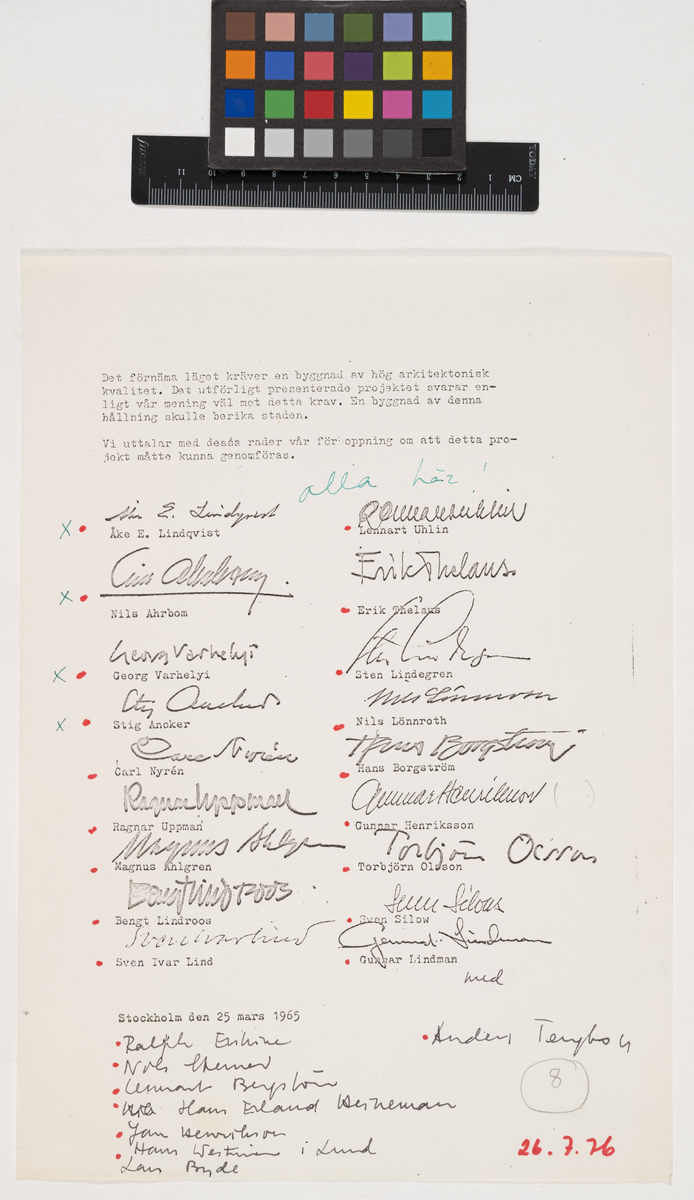 CM 1 2 3 4 5 6 7 8 9 10 11
Det förnäma läget kräver en byggnad av hög arkitektonisk
kvalitet. Det utförligt presenterade projektet svarar en-
ligt vår mening väl mot detta krav. En byggnad av denna
hållning skulle berika staden.
Vi uttalar med dessa rader vår förhoppning om att detta pro-
jekt måtte kunna genomföras.
alla här!
Åke E. Lindqvist Lennart Uhlin
x Åke E. Lindqvist Lennart Uhlin
Nils Ahrbom Erik Thelaus
x Nils Ahrbom Erik Thelaus
Georg Varhelyi Sten Lindegren
x Georg Varhelyi Sten Lindegren
Stig Ancker Nils Lönnroth
x Stig Ancker Nils Lönnroth
Carl Nyrén Hans Borgström
Carl Nyrén Hans Borgström
Ragnar Uppman Gunnar Henriksson ( )
Ragnar Uppman Gunnar Henriksson
Magnus Ahlgren Torbjörn Olsson
Magnus Ahlgren Torbjörn Olsson
Bengt Lindroos Sven Silow
Bengt Lindroos Sven Silow
Sven Ivar Lind Gunnar Lindman
Sven Ivar Lind Gunnar Lindman
med
Stockholm den 25 mars 1965
Ralph Erskine Anders Tengbom
Nils
Lennart Bergström
Hans Erland Heineman
Jan Henrikson
Hans Westman i Lund
Lars Bryde
8
26.7.76